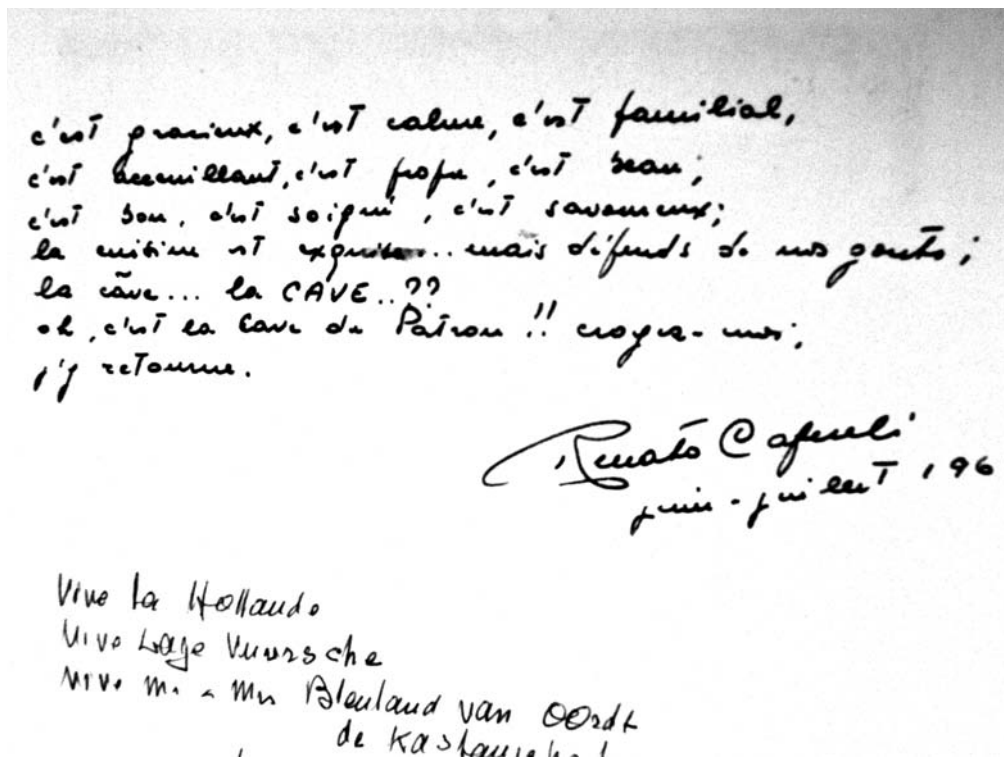 c'est gracieux, c'est calme, c'est familial,
c'est accueillant, c'est propre, c'est beau;
c'est bon, c'est soigné, c'est savoureux;
la cuisine est exquise... mais défends de nos gouts;
la cãve... la CAVE..??
oh, c'est la Cave du Patron !! croyez-moi;
j'y retourne.
Renato
juin - juillet '96
Vive la Hollande
Vive Lage Vuursche
Vive Mr & Mrs Bleuland van OOrdt
de